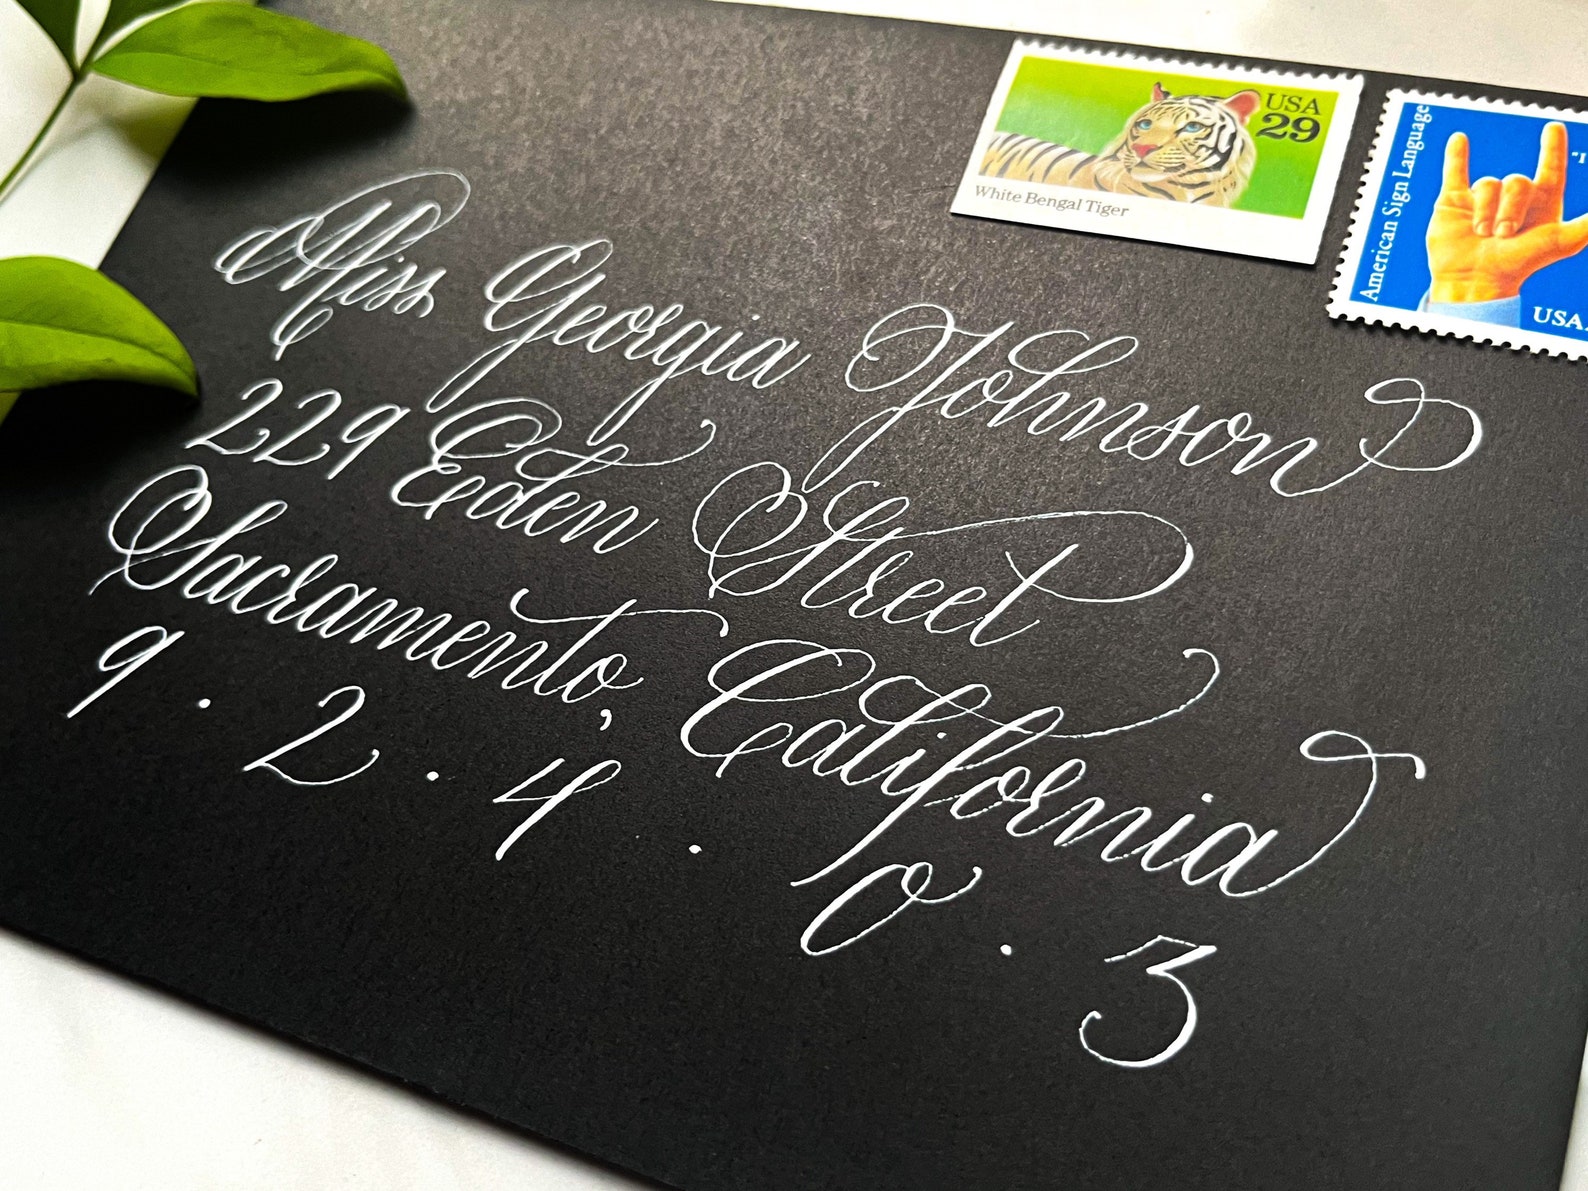 Miss Georgia Johnson
229 Eden Street
Sacramento, California
9 . 2 . 4 . 0 . 3
USA
29
White Bengal Tiger
American Sign Language
"I
USA